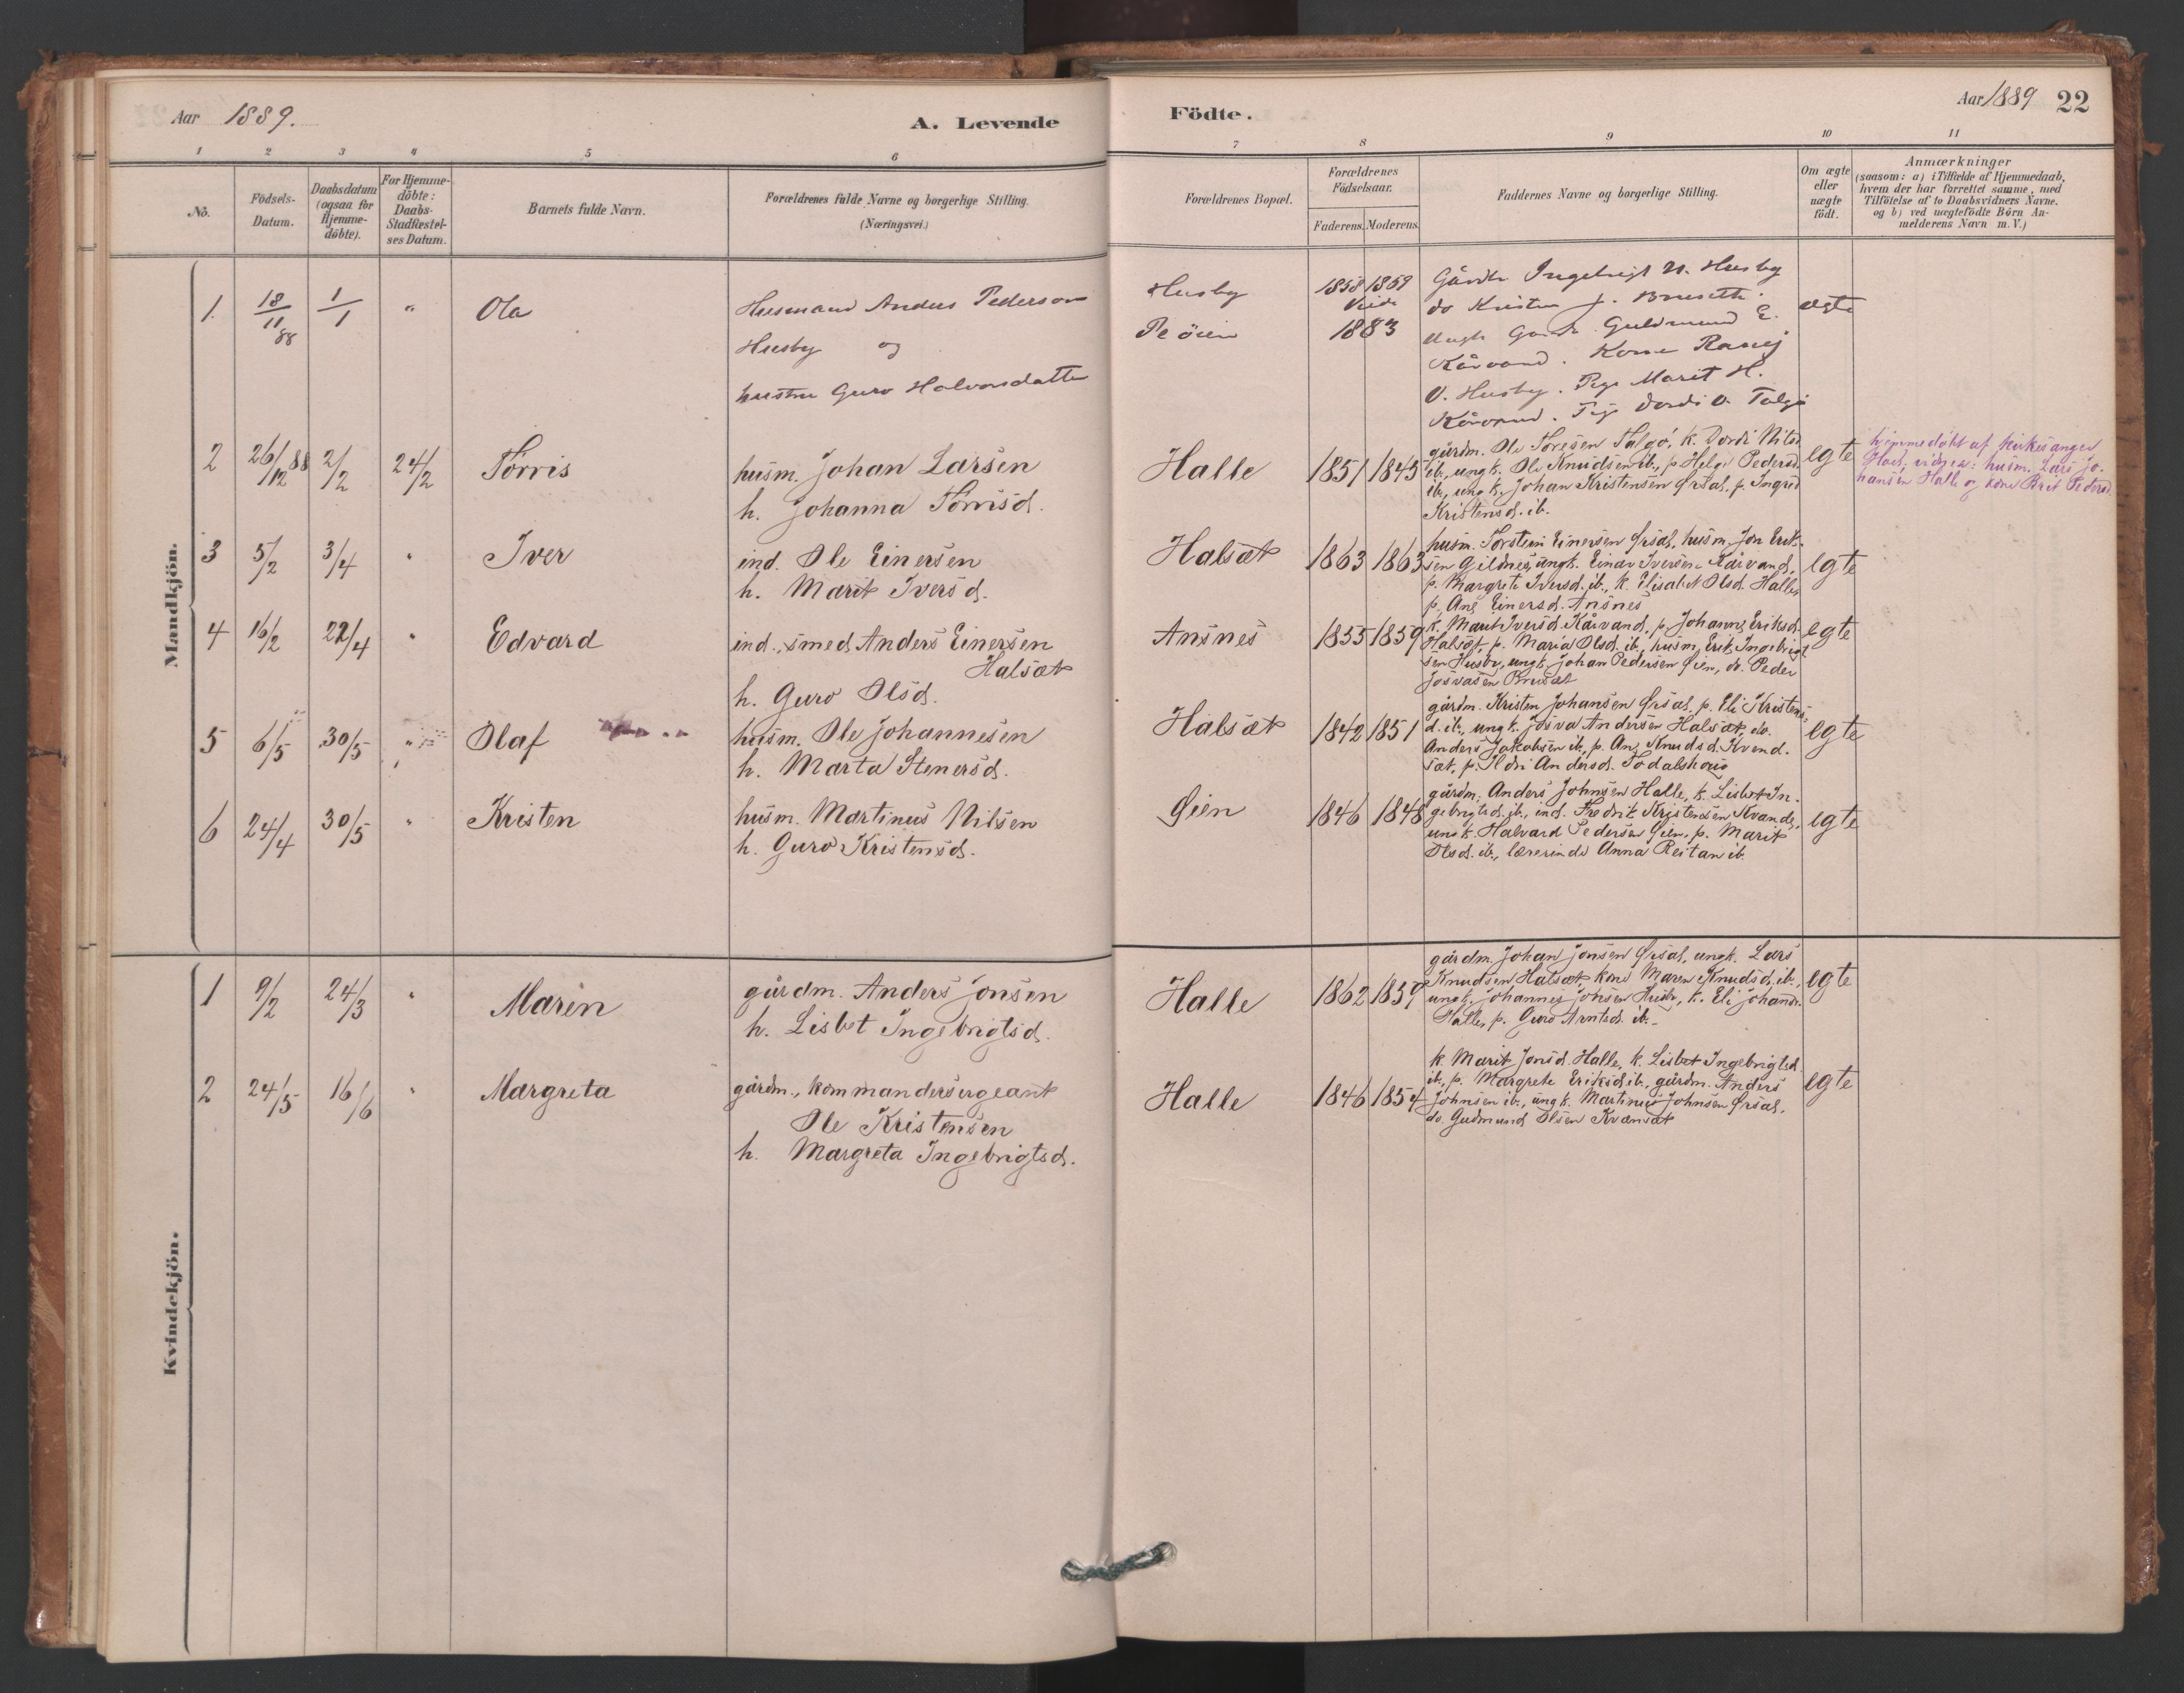 Aar 1889.
A. Levende
Födte.
Aar 1889
22
1 2 3 4 5 6 7 8 9 10 11
No.
Födsels-
Datum.
Daabsdatum
(ogsaa for
Hjemme-
döbte).
For Hjemme-
döbte:
Daabs-
Stadfæstel-
ses Datum.
Barnets fulde Navn.
Forældrenes fulde Navne og borgerlige Stilling.
(Næringsvei.)
Forældrenes Bopæl.
Forældrenes
Födselsaar.
Faderens. Moderens.
Faddernes Navne og borgerlige Stilling.
Om ægte
eller
uægte
födt.
Anmærkninger
(saasom: a) i Tilfælde af Hjemmedaab,
hvem der har forrettet samme, med
Tilföielse af to Daabsvidners Navne.
og b) ved uægtefödte Börn An-
melderens Navn m. V.)
Mandkjön.
1. 18/11 88 1/1 " Ola
Husmand Anders Pedersen
Husby og
hustru Guro Halvorsdatter
Husby
Pe öien
1858 1859
Viede
1883
Gårdbr Ingebrigt N. Husby
do Kristen J. Bruseth.
Guldmund E.
Kårvand. Kone Ranej
O. Husby. Pige Marit H.
Kårvand. Pige Dordi O. Talgö
ægte
2 26/12 88 2/2 24/2 Törris
husm. Johan Larsen
h. Johanna Törrisd.
Halle 1851 1845
gårdm. Ole Toresen Talgö, k. Dordi Nilsd.
ib., ungk. Ole Knudsen ib., p Helge Pedersd.
ib., ungk. Johan Kristensen Ørsal, p. Ingrid
Kristensd. ib.
egte
hjemmedöbt af kirkesanger
husm. Lars Jo-
hansen Halle og kone Brit Pedersd.
3 5/2 3/4 " Iver
ind. Ole Einersen
h. Marit Iversd.
Halsæt 1863 1863
husm. Torstein Einersen Ørsal, husm. Jon Erik-
sen Gildnes, ungk. Einar Iversen Kårvand,
p. Margrete Iversd. ib., k. Elisabet Olsd. Halle,
p. Ane Einersd. Ansnes
egte
4 16/2 22/4 " Edvard
ind., smed Anders Einersen
Halsæt
h. Guro Olsd.
Ansnes 1855 1859
k. Marit Iversd. Kårvand, p. Johanne Eriksd.
Halsæt, p. Maria Olsd. ib., husm. Erik Ingebrigt-
sen Husby, ungk. Johan Pedersen Øien, do. Peder
Josvasen Brusæt
egte
5 6/5 30/5 " Olaf
husm. Ole Johannesen
h. Marta Stenersd.
Halsæt 1842 1851
gårdm. Kristen Johansen Ørsal, p. Eli Kristens-
d. ib., ungk. Josva Andersen Halsæt, do.
Anders Jakobsen ib., p. Ane Knudsd. Kvend-
sæt, p. Ildri Andersd. Todalshoug
egte
6 24/4 30/5 " Kristen
husm. Martinus Nilsen
h. Guro Kristensd.
Øien 1846 1848
gårdm. Anders Johnsen Halle, k. Lisbet In-
gebrigtsd. ib., ind. Fredrik Kristensen Kvande,
ungk. Halvard Pedersen Øien, p. Marit
Olsd. ib., lærerinde Anna Reitan ib.
egte
Kvindekjön.
1 9/2 24/3 " Maren
gårdm. Anders Jonsen
h. Lisbet Ingebrigtsd.
Halle 1862 1859
gårdm. Johan Jonsen Ørsal, ungk. Lars
Knudsen Halsæt, kone Maren Knudsd. ib.,
ungk. Johannes Johsen Husby, k. Eli Johansd.
Halle, p. Guro Arntsd. ib.
egte
2 24/5 16/6 " Margreta
gårdm., kommandersergeant
Ole Kristensen
h. Margreta Ingebrigtsd.
Halle 1846 1854
k Marit Jonsd. Halle, k. Lisbet Ingebrigtsd.
ib., p. Margrete Eriksd. ib., gårdm. Anders
Johnsen ib., ungk. Martinus Johnsen Ørsal,
do. Gudmund Olsen Kvænsæt
egte